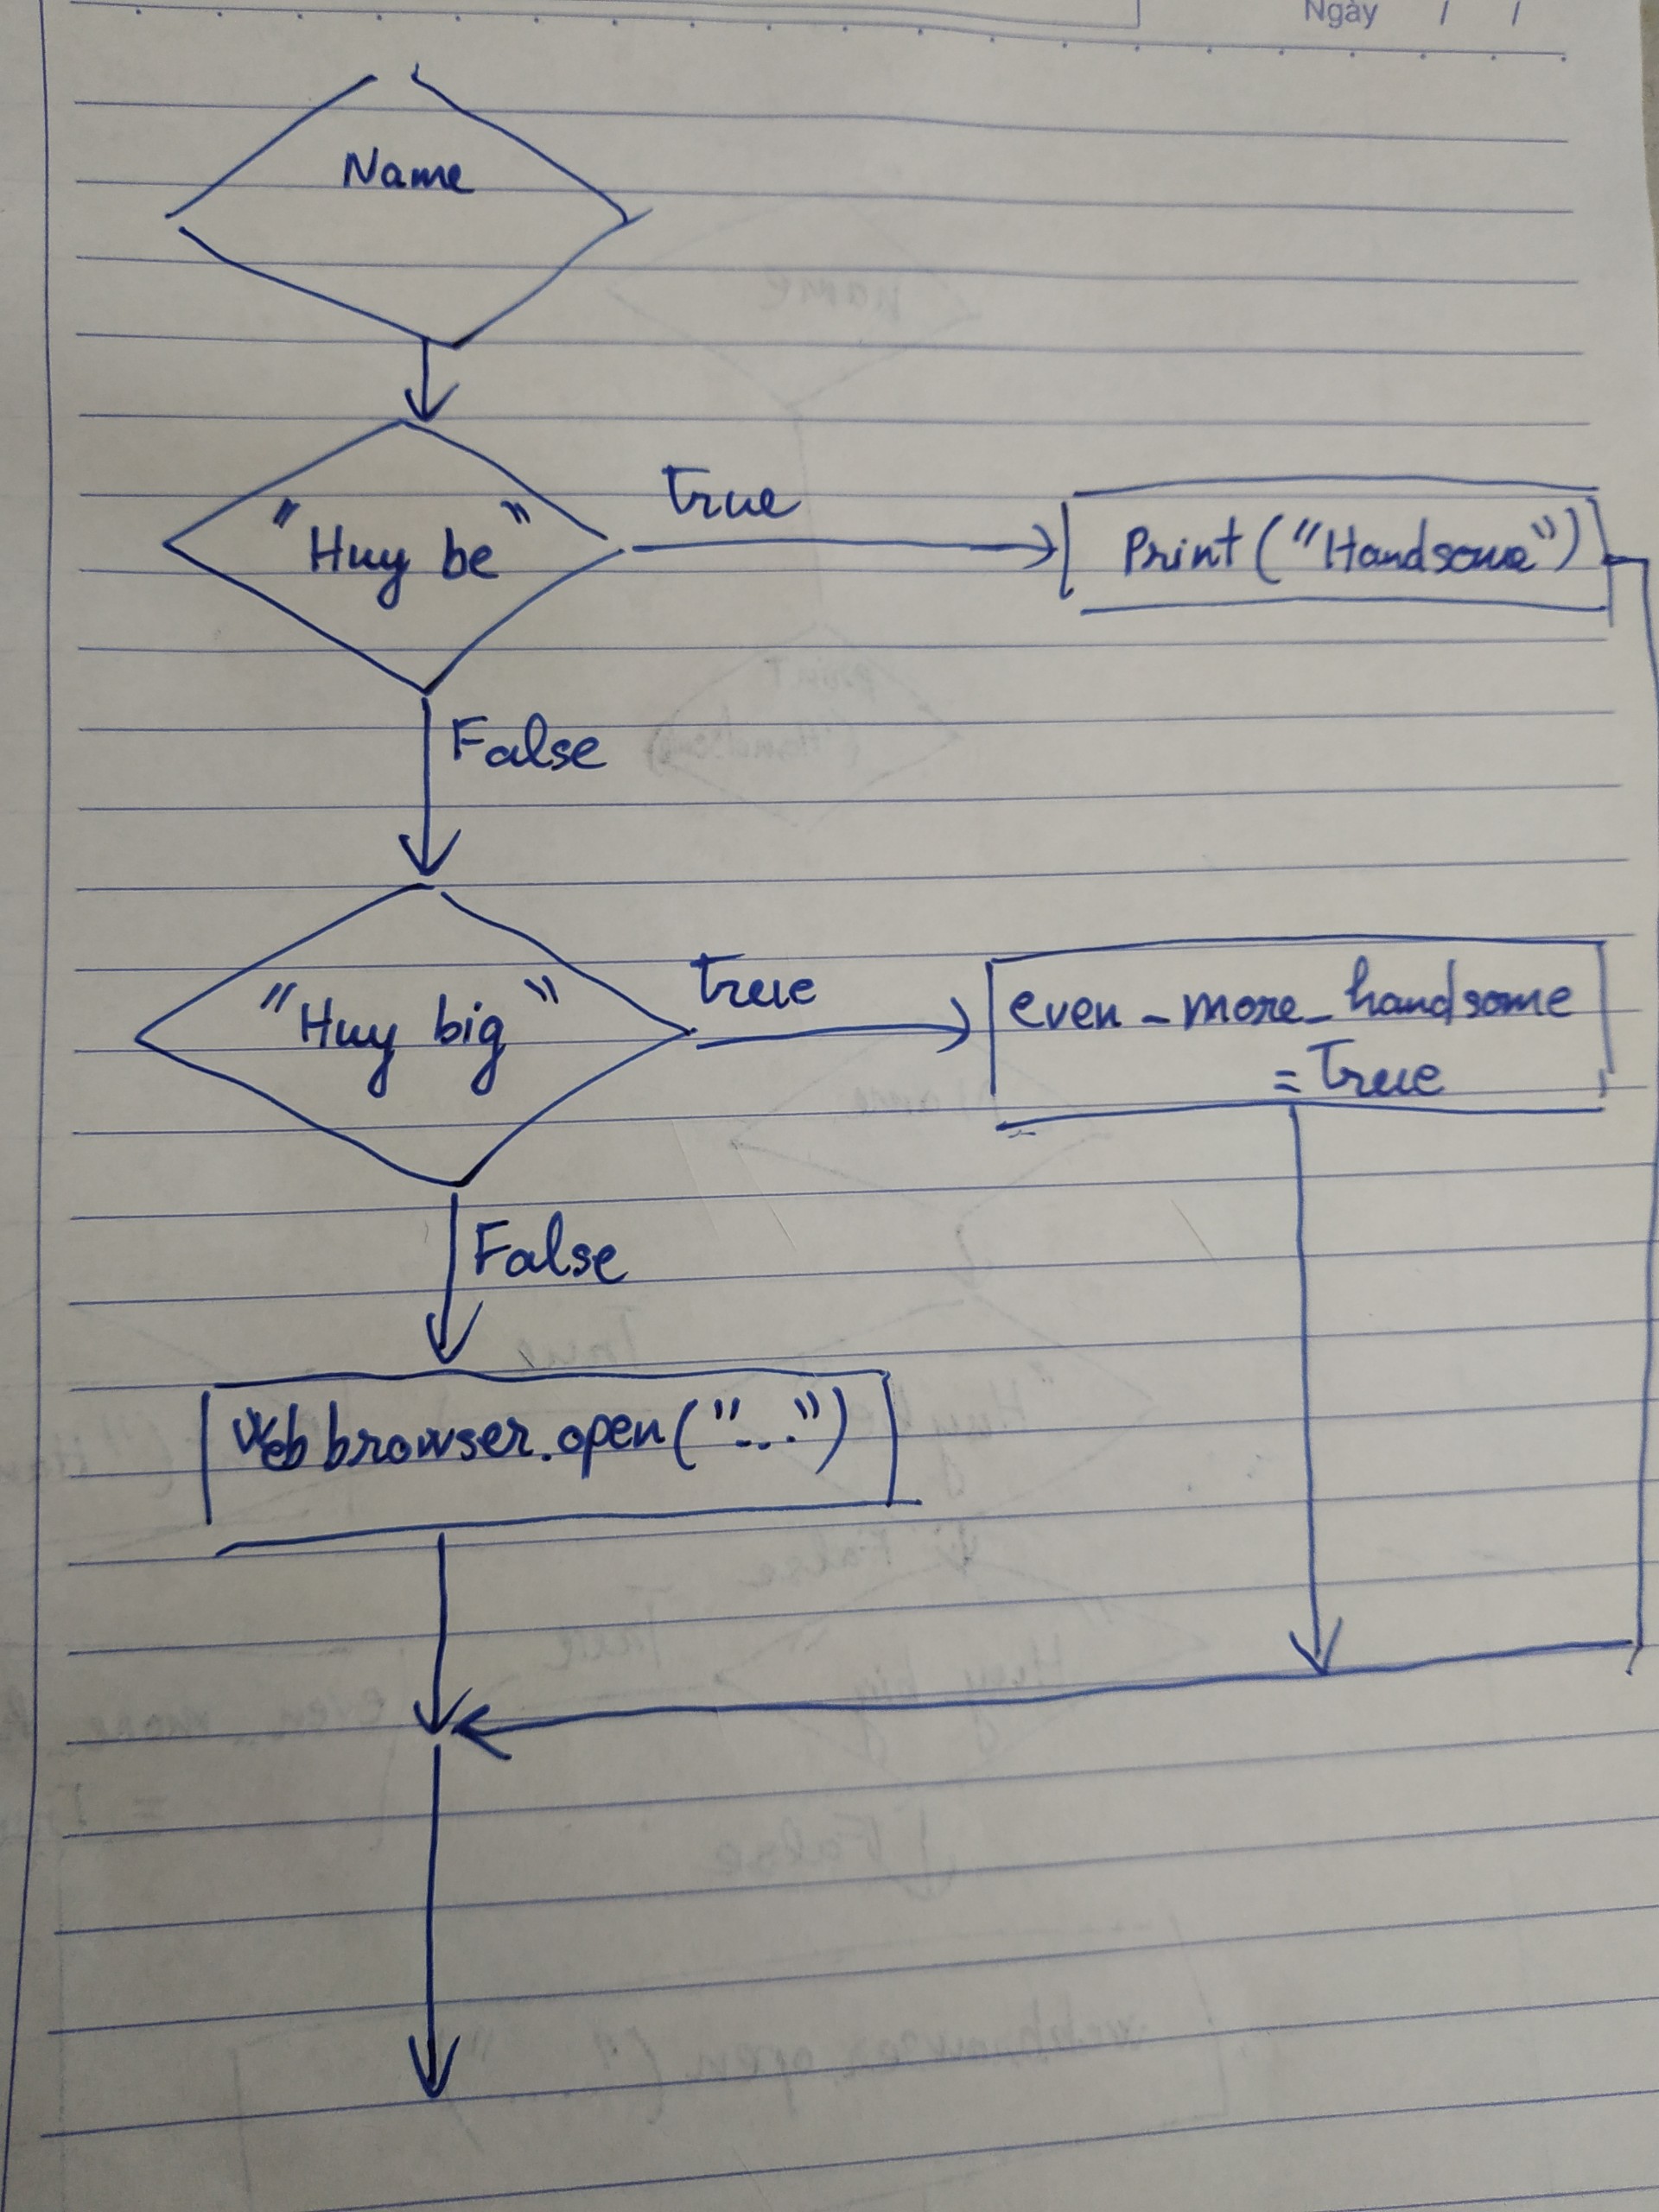 Ngày / /
Name
"Huy be"
True
Print("Handsome")
False
"Huy big"
True
even_more_handsome
= True
False
Webbrowser.open("...")